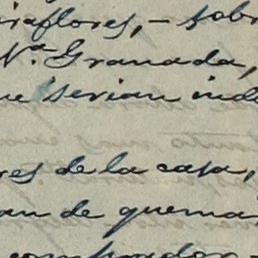 iraflores, — sobr
Nª Granada,
ue serian inde
res de la casa,
an de quema
comprador